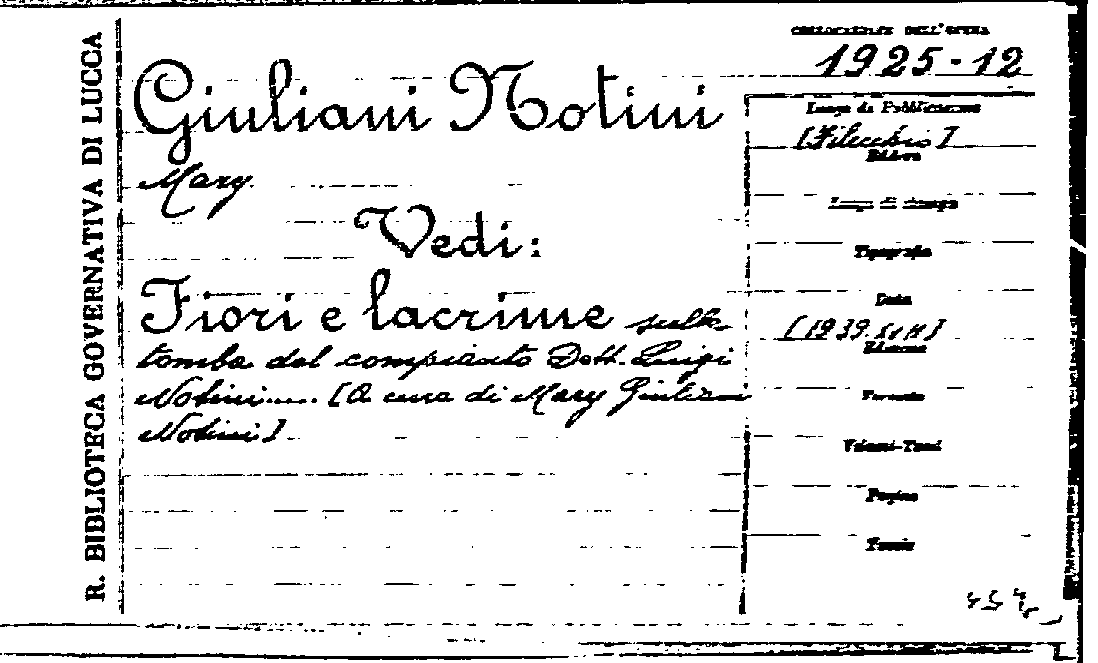 R. BIBLIOTECA GOVERNATIVA DI LUCCA
COLLOCAZIONE DELL'OPERA
1925-12
Giuliani Notini
Mary
Vedi:
Fiori e lacrime sulla
tomba del compianto Dott. Luigi
Notini..... [A cura di Mary Giuliani
Notini]
Luogo di Pubblicazione
[Filecchio]
Editore
Luogo di stampa
Tipografia
Data
[1939.
Edizione
Formato
Volumi-Tomi
Pagine
Tavole